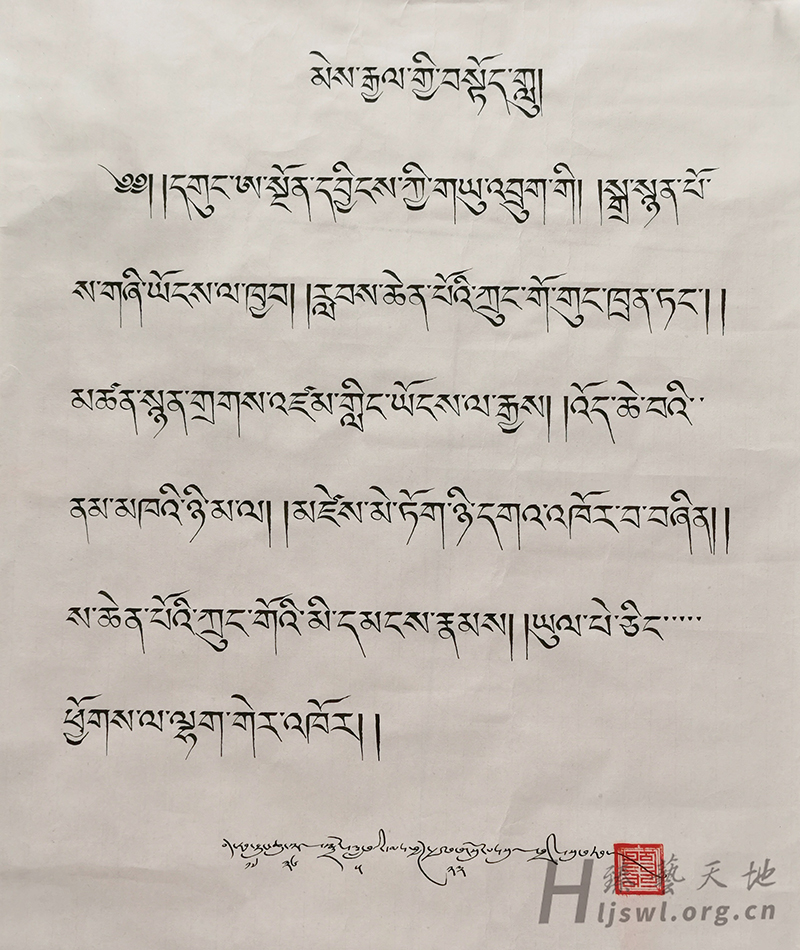 མེས་རྒྱལ་གྱི་བསྟོད་གླུ།
༄༅། །དགུང་ཨ་སྔོན་དབྱིངས་ཀྱི་གཡུ་འབྲུག་གི། །སྒྲ་སྙན་པོ་
ས་གཞི་ཡོངས་ལ་ཁྱབ། །རླབས་ཆེན་པོའི་ཀྲུང་གོ་གུང་ཁྲན་ཏང་། །
མཚན་སྙན་གྲགས་འཛམ་གླིང་ཡོངས་ལ་རྒྱས། །འོད་ཆེ་བའི་་
ནམ་མཁའི་ཉི་མ་ལ། །མཛེས་མེ་ཏོག་ཉི་དགའ་འཁོར་བ་བཞིན། །
ས་ཆེན་པོའི་ཀྲུང་གོའི་མི་དམངས་རྣམས། །ཡུལ་པེ་ཅིང་་་་་
ཕྱོགས་ལ་ལྷག་གེར་འཁོར། །
臻藝天地
Hljswl.org.cn